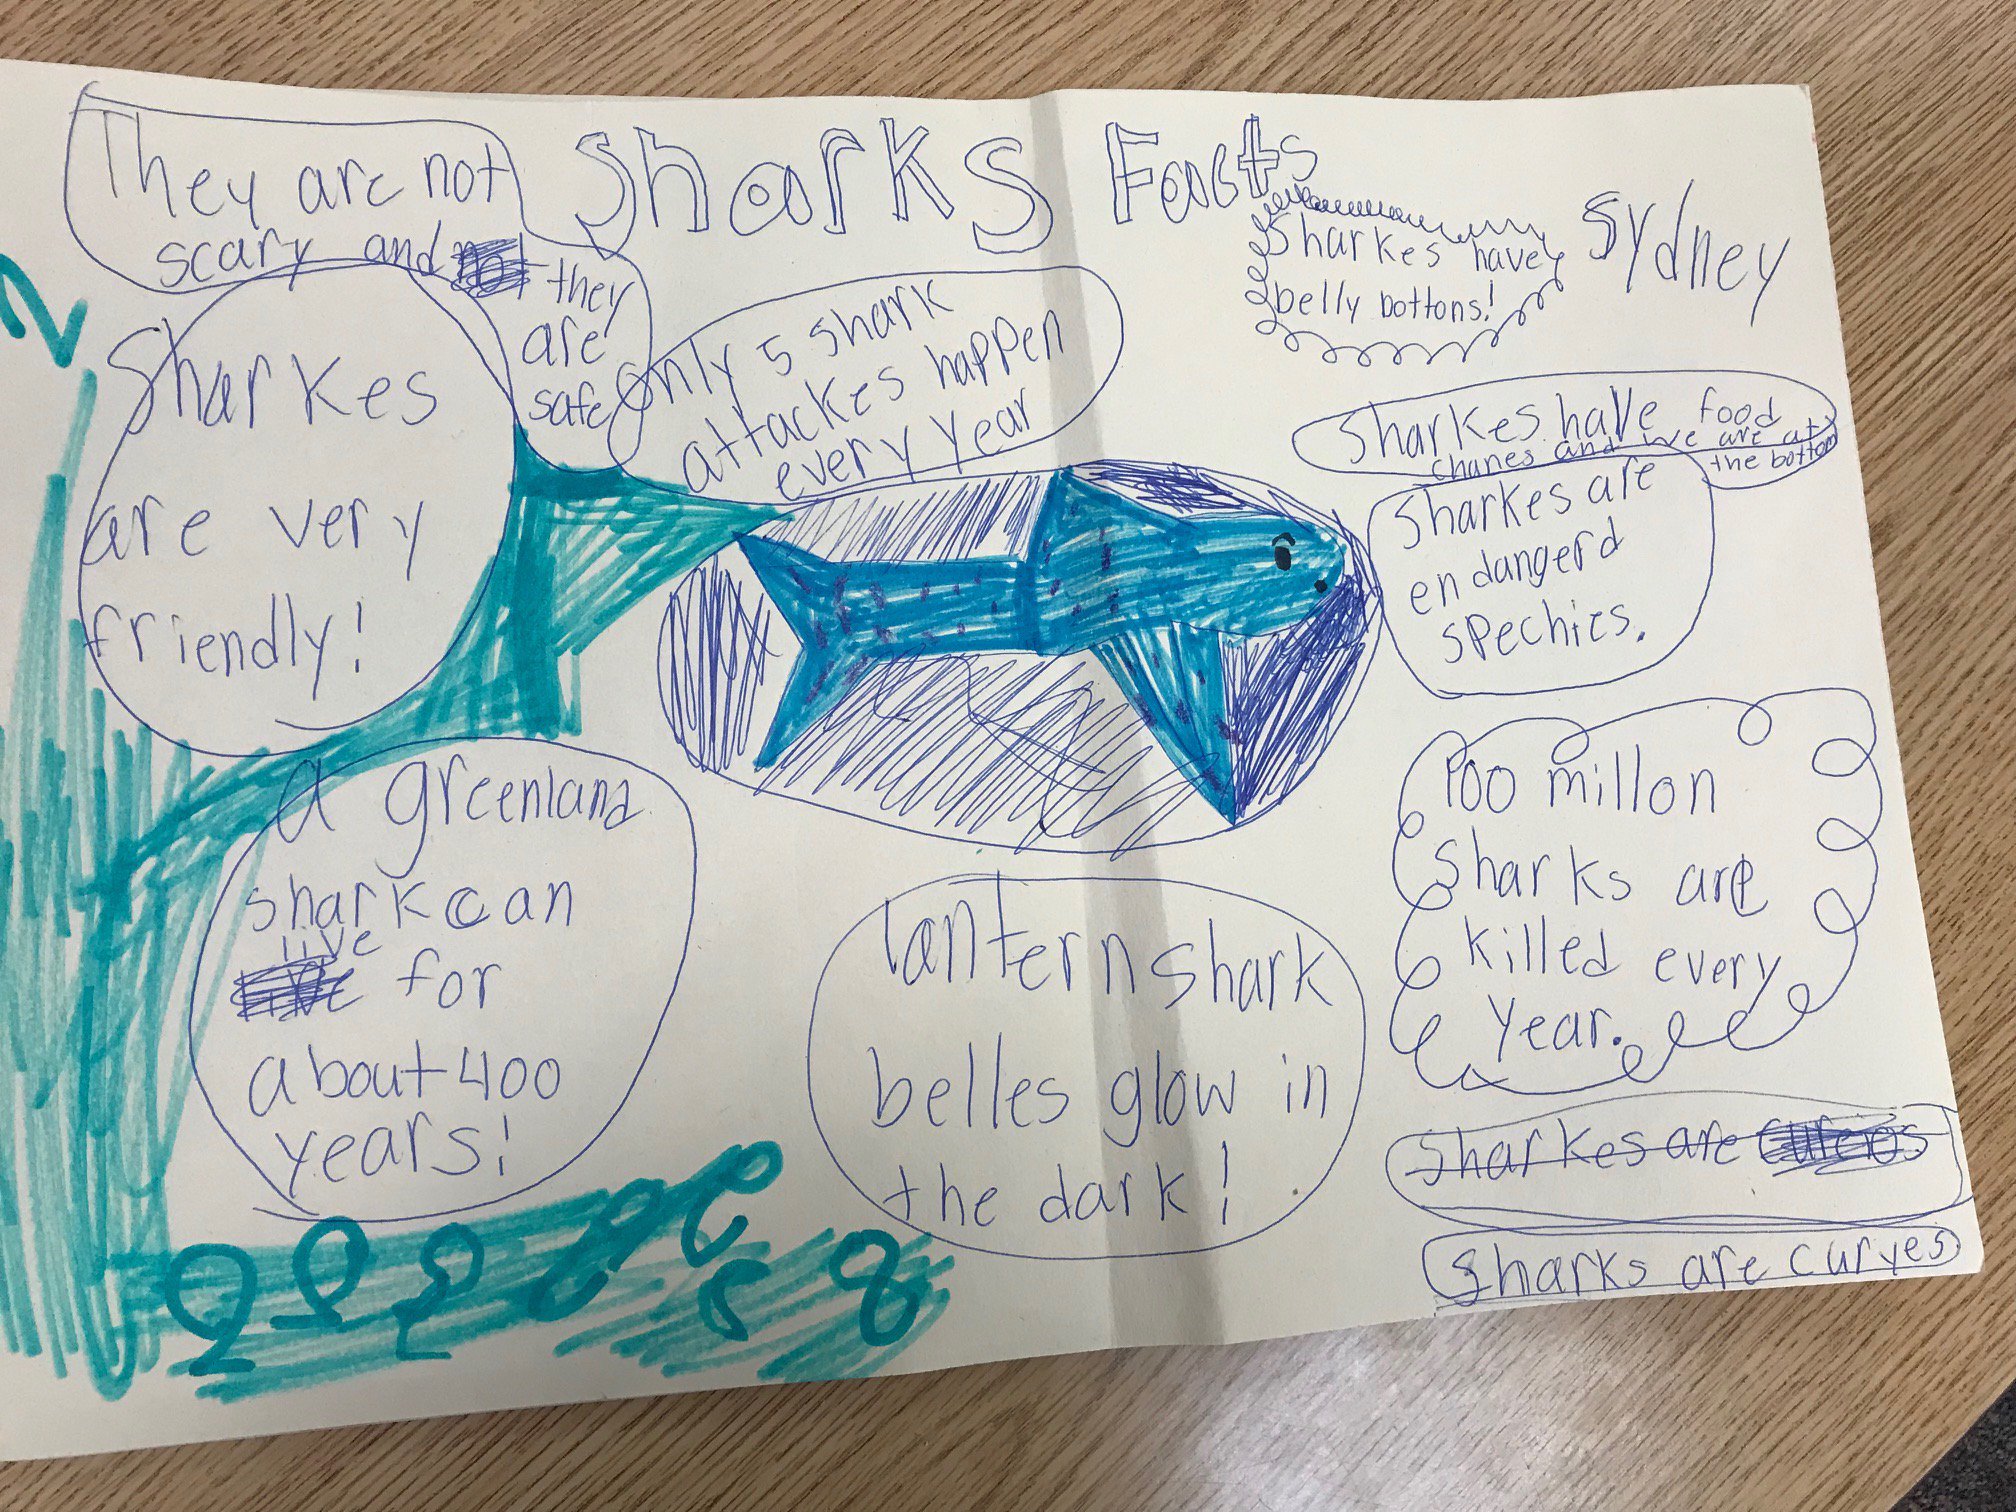 Sharks Facts
Sydney
They are not
scary and they
are
safe
Sharkes
are very
friendly!
only 5 shark
attackes happen
every year
Sharkes have
belly bottons!
Sharkes have food
chanes and we are at
the bottom
Sharkes are
endangerd
spechies.
100 millon
sharks are
killed every
year.
a greenland
shark can
live
for
about 400
years!
lantern shark
belles glow in
the dark!
Sharkes are
Sharks are curyes
2